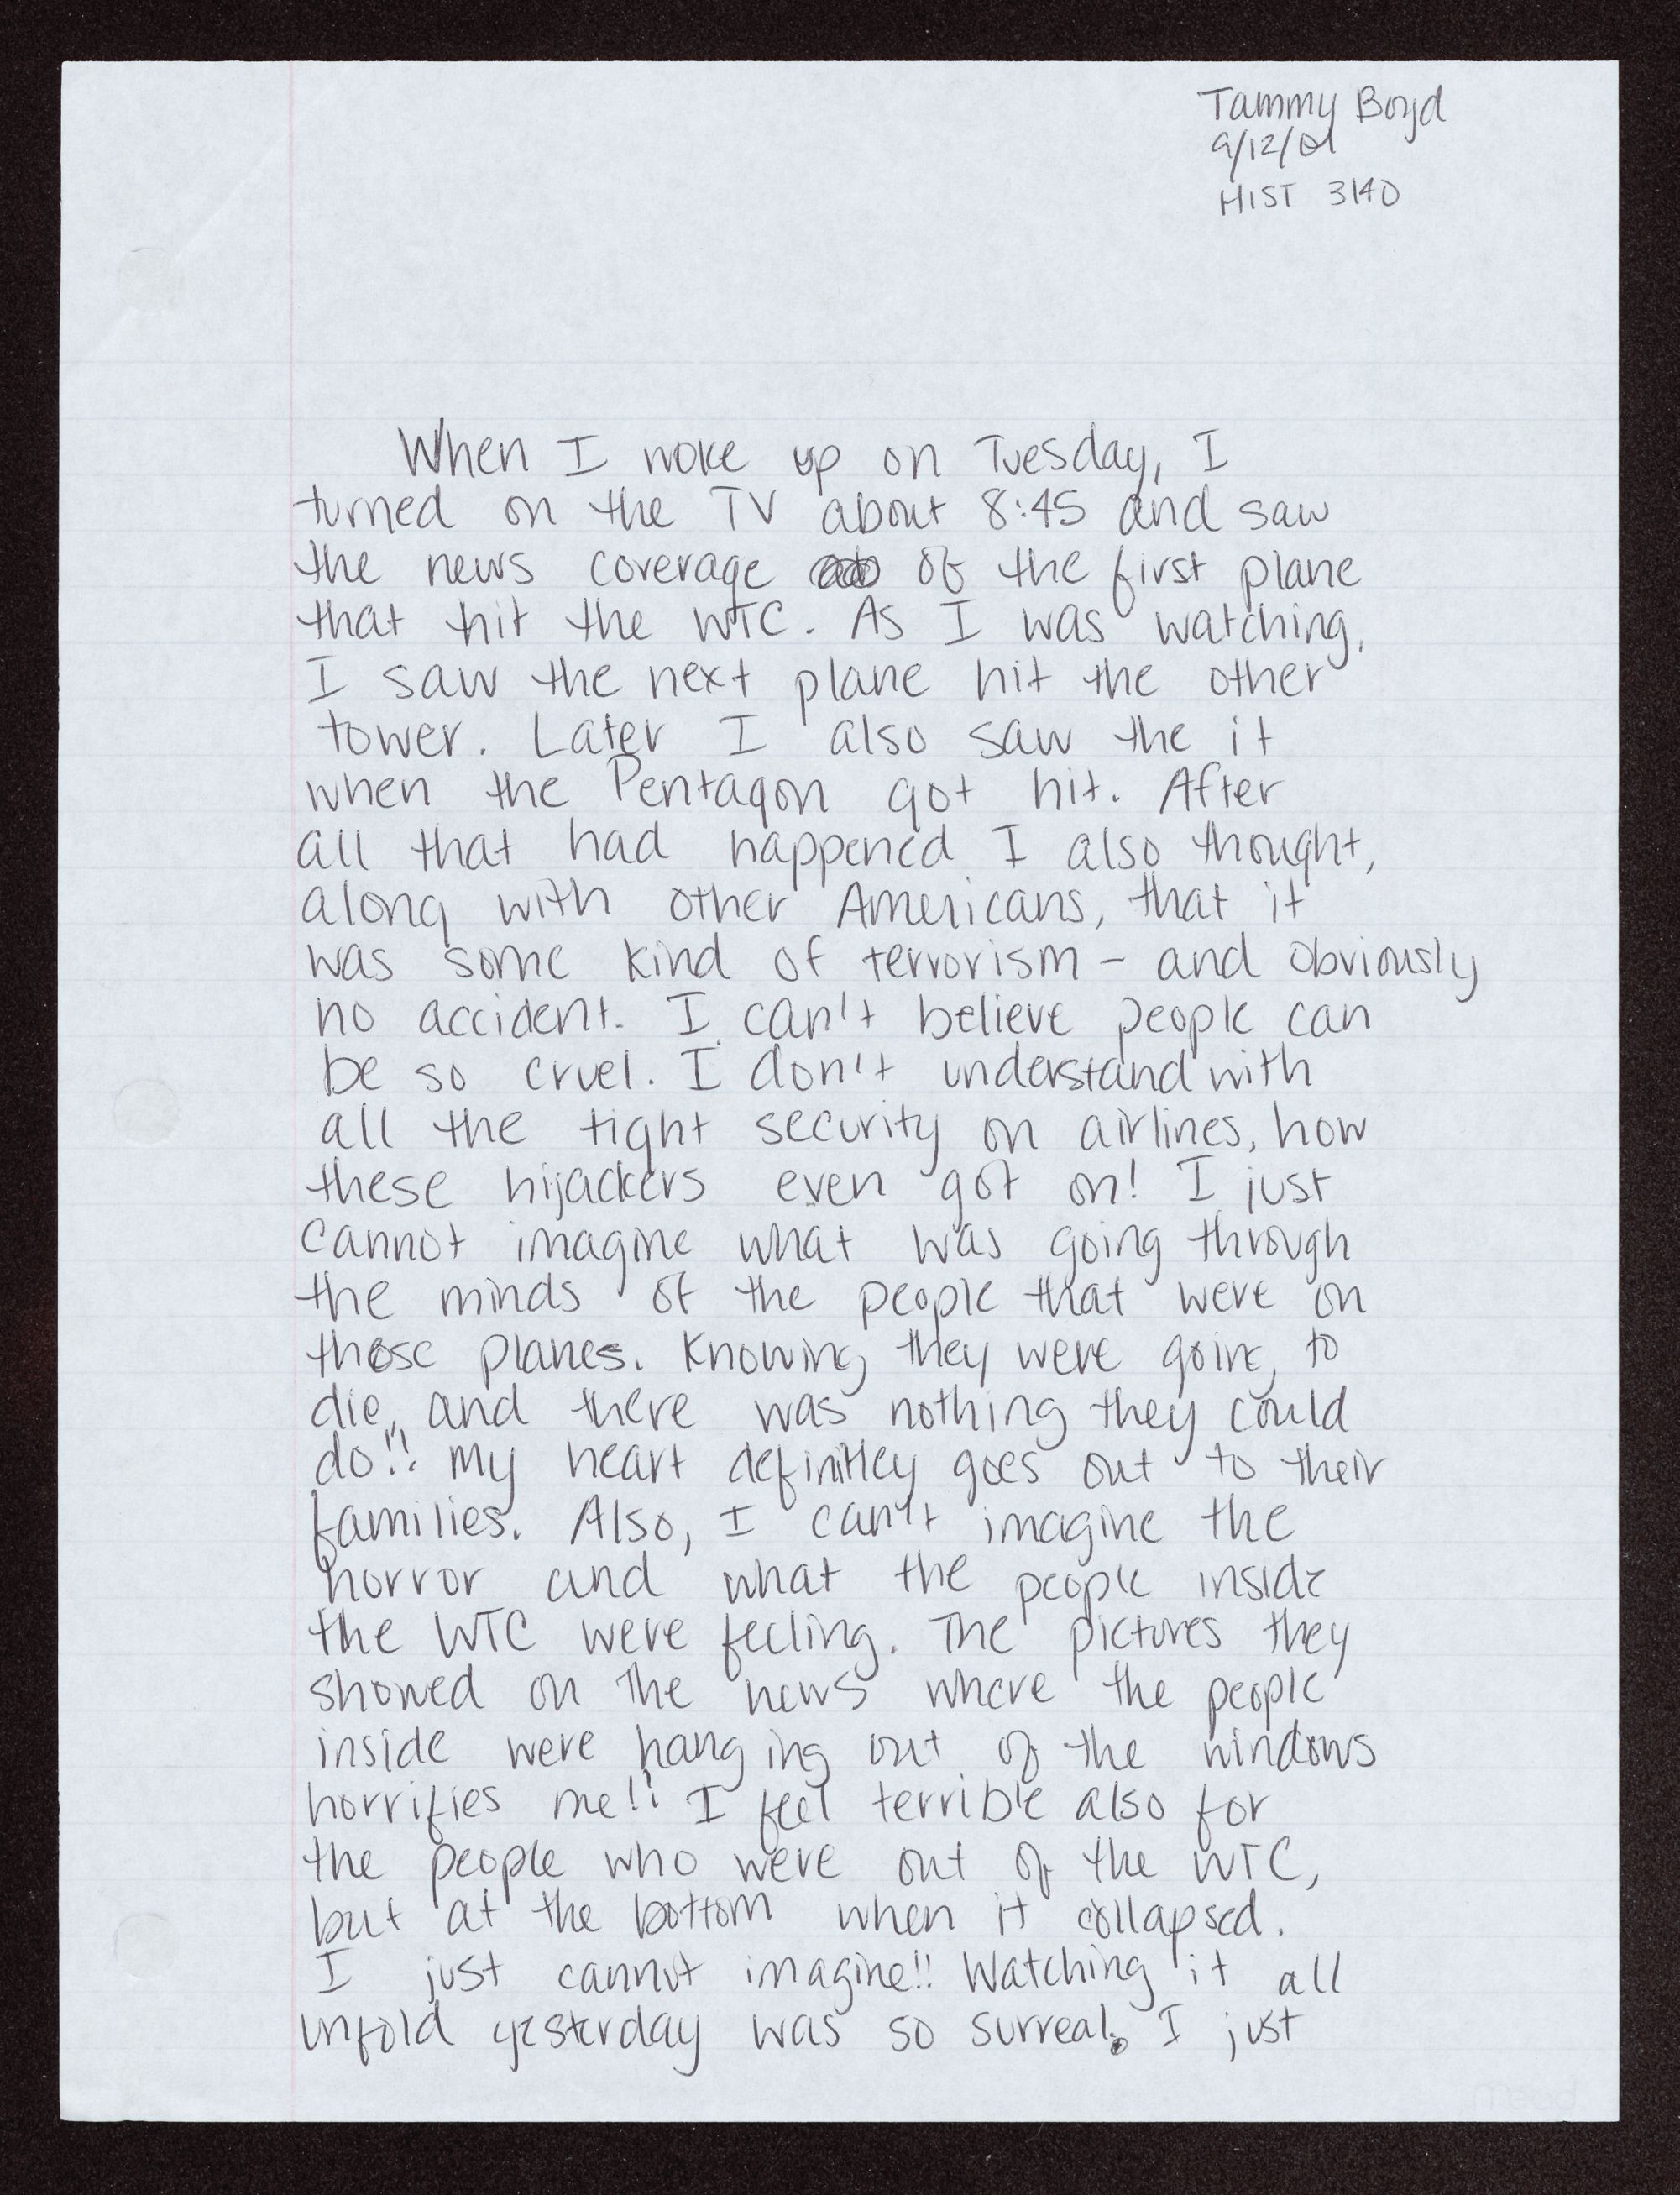 Tammy Boyd
9/12/01
HIST 3140
When I woke up on Tuesday, I
turned on the TV about 8:45 and saw
the news coverage of the first plane
that hit the WTC. As I was watching,
I saw the next plane hit the other
tower. Later I also saw the it
when the Pentagon got hit. After
all that had happened I also thought,
along with other Americans, that it
was some kind of terrorism - and obviously
no accident. I can't believe people can
be so cruel. I don't understand with
all the tight security on airlines, how
these hijackers even got on! I just
cannot imagine what was going through
the minds of the people that were on
those planes. Knowing they were going to
die, and there was nothing they could
do!! My heart definitley goes out to their
families. Also, I can't imagine the
horror and what the people inside
the WTC were feeling. The pictures they
showed on the news where the people
inside were hanging out of the windows
horrifies me!! I feel terrible also for
the people who were out of the WTC,
but at the bottom when it collapsed.
I just cannot imagine!! Watching it all
unfold yesterday was so surreal. I just
Mead